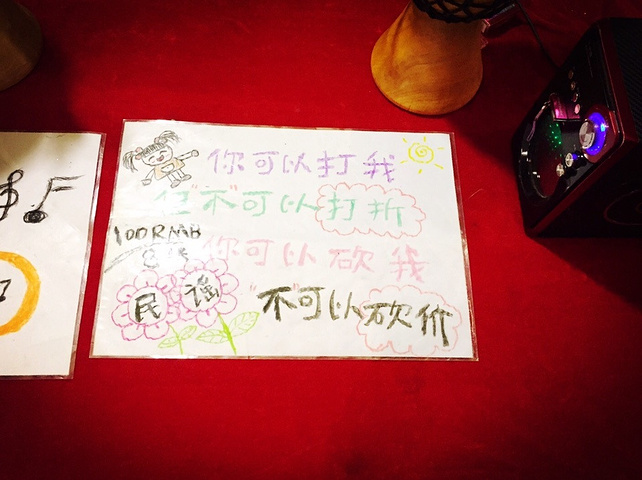 你可以打我
但"不"可以打折
100RMB
你可以砍我
民谣
"不"可以砍价